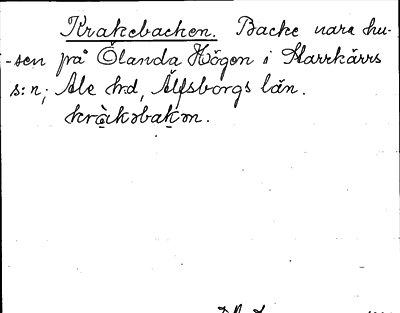 Krakebacken. Backe nära hu-
-sen på Ölanda Högen i Starrkärrs
s:n; Ale h:d, Älfsborgs län.
kràkəbakən.